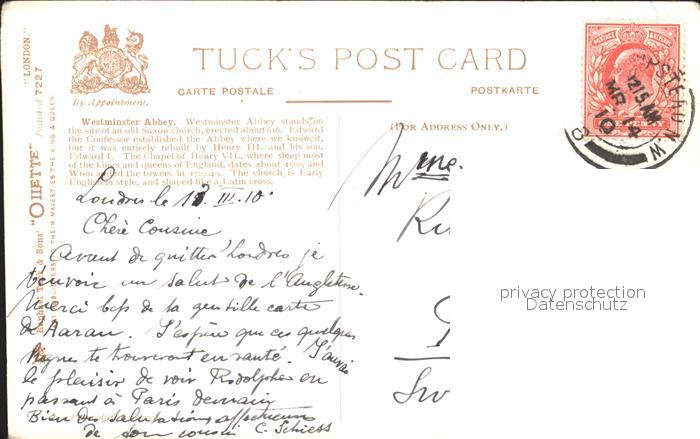 TUCK'S POST CARD
By Appointment.
CARTE POSTALE
POSTKARTE
(FOR ADDRESS ONLY.)
"LONDON."
Postcard 7227
Raphael Tuck & Sons' "OILETTE"
TO THEIR MAJESTIES THE KING & QUEEN
Westminster Abbey. Westminster Abbey stands on
the site of an old Saxon church, erected about 616. Edward
the Confessor established the Abbey where we know it,
but it was entirely rebuilt by Henry III. and his son,
Edward I. The Chapel of Henry VII., where sleep most
of the kings and queens of England, dates about 1500, and
Wren added the towers in 1722-40. The church is Early
English in style, and shaped like a Latin cross.
Londres le 13. III. 10.
Chère Cousine
Avant de quitter Londres je
t'envoie un salut de l'Angleterre.
Merci bcp de ta gentille carte
de Aarau. J'espère que ces quelques
lignes te trouveront en santé. J'aurai
le plaisir de voir Rodolphe en
passant à Paris demain
Bien des salutations affectueuses
de ton cousin C. Schiess
Mme.
POSTAGE & REVENUE
ONE PENNY
STEAD N.W
12.15 AM
MR 14
10
privacy protection
Datenschutz